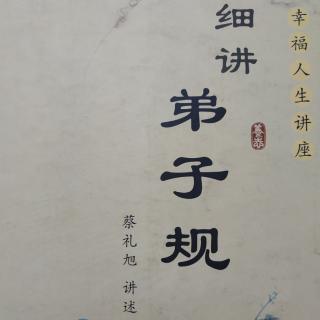 幸福人生讲座
细讲
弟子规
蔡礼旭 讲述